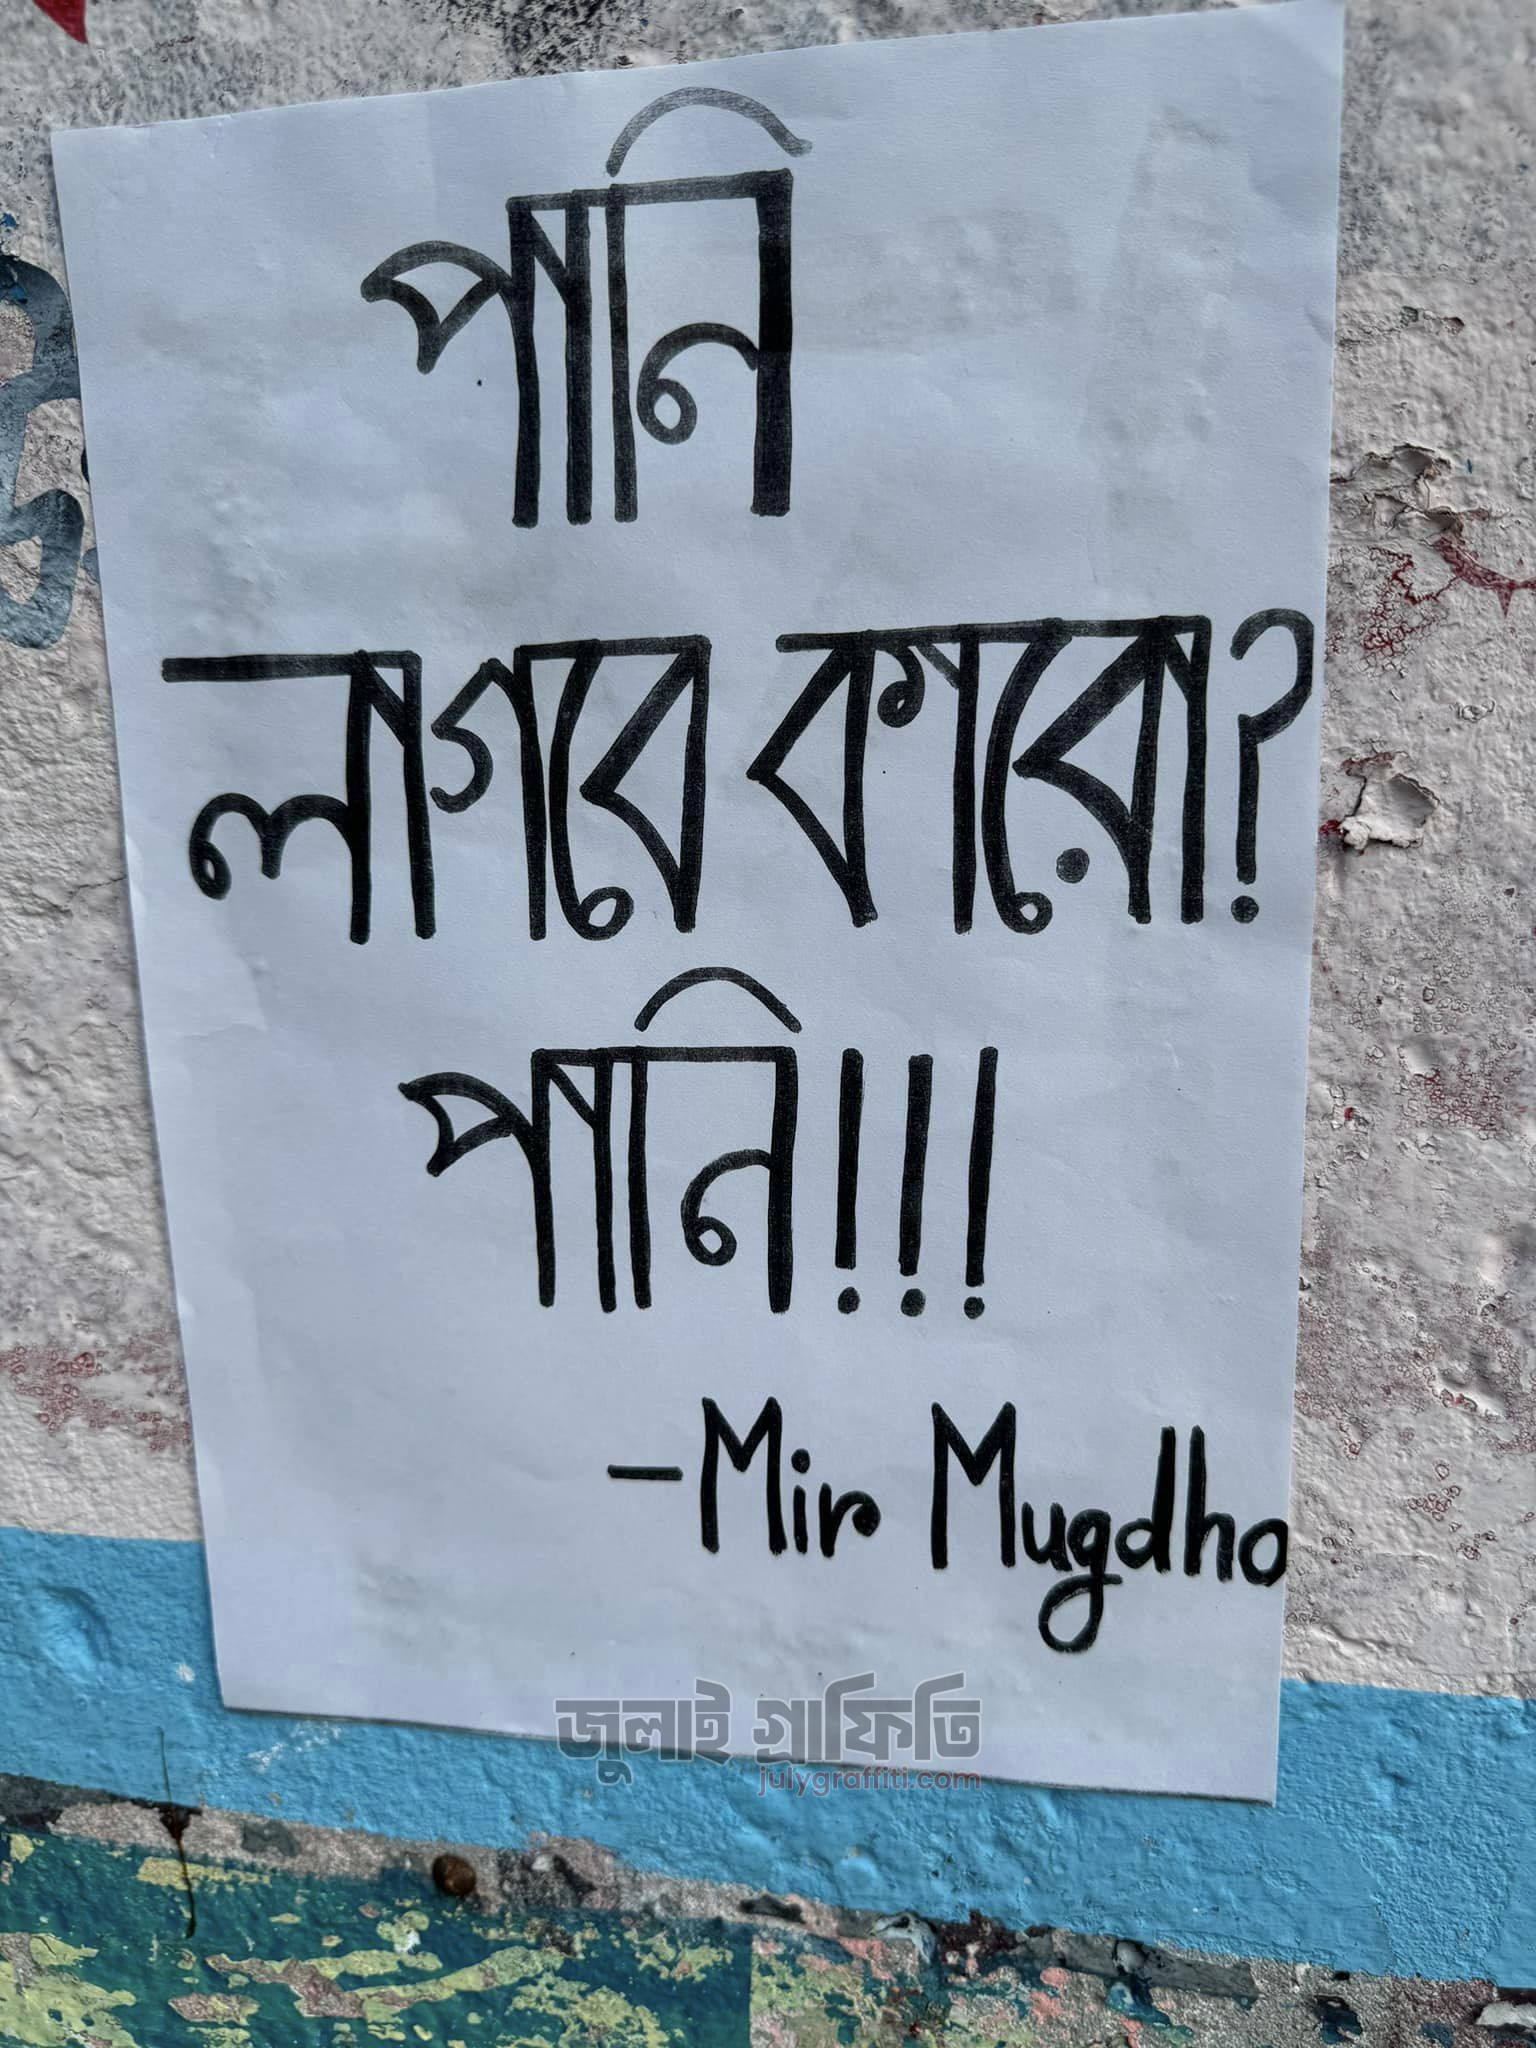 পানি
লাগবে কারো?
পানি!!!
-Mir Mugdho
জুলাই গ্রাফিতি
julygraffiti.com